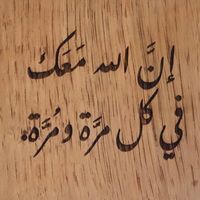 إنَّ الله مَعَكَ
في كل مرَّة ومُرَّة.